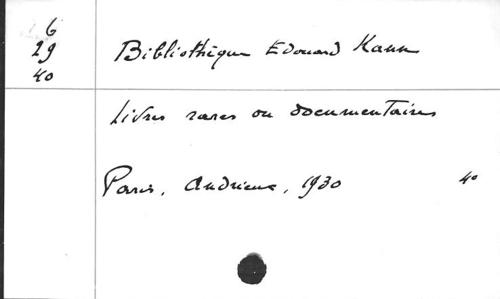 6
29
40
Bibliothèque Edouard Kann
Livres rares ou documentaires
Paris, Andrieux, 1930 4°